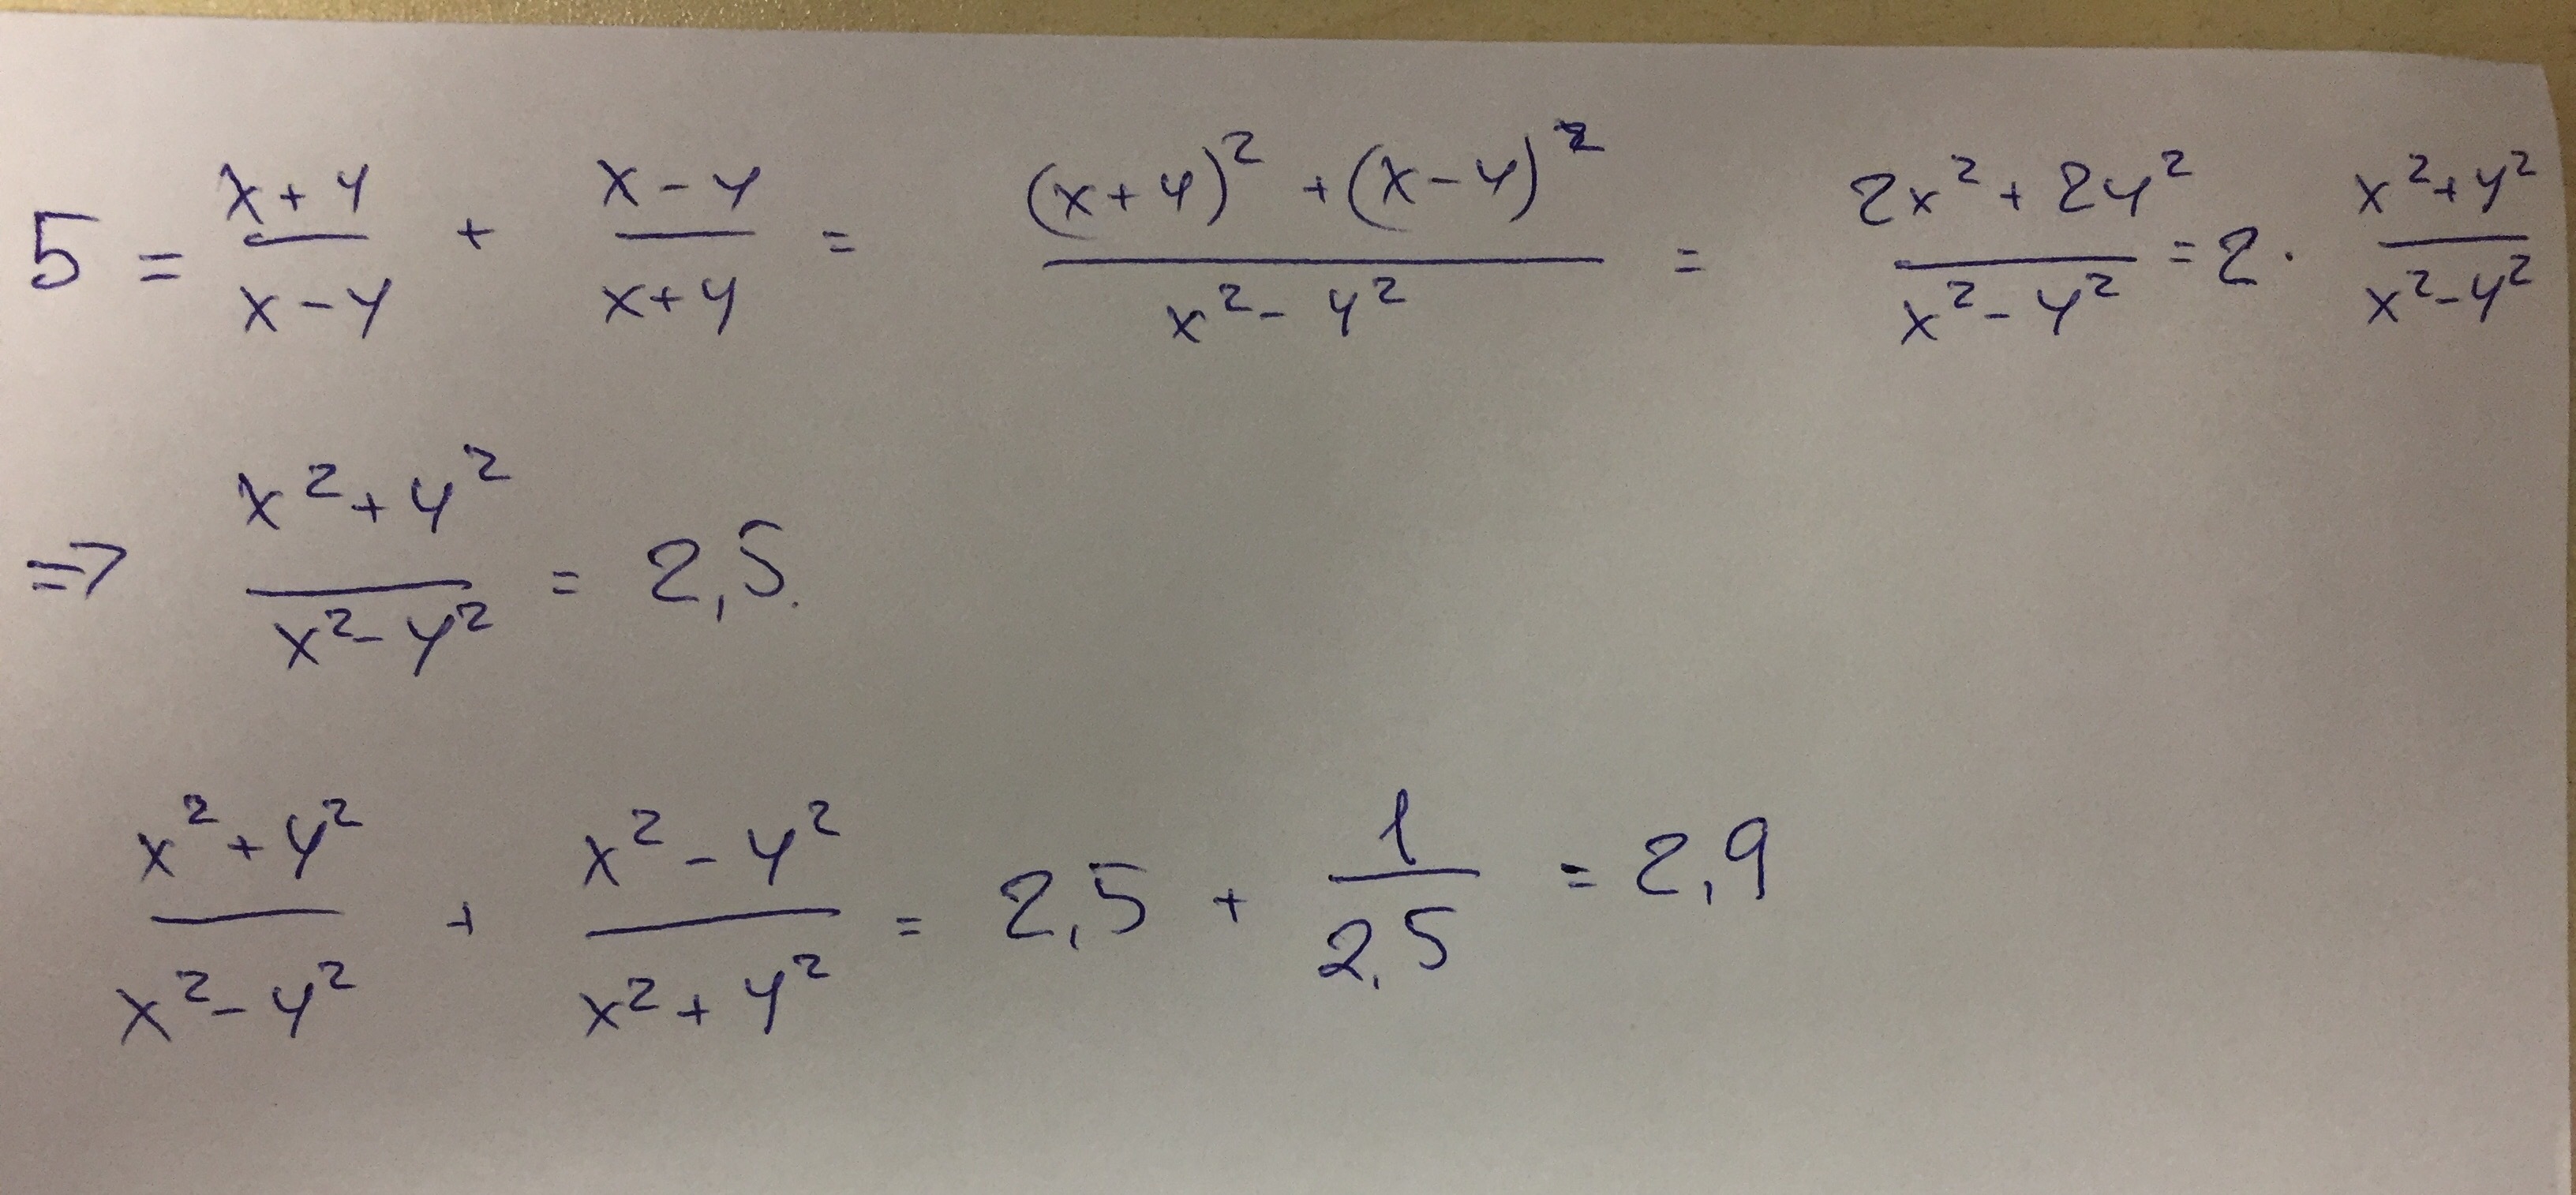 5 = \frac{x+y}{x-y} + \frac{x-y}{x+y} = \frac{(x+y)^2 + (x-y)^2}{x^2-y^2} = \frac{2x^2+2y^2}{x^2-y^2} = 2 \cdot \frac{x^2+y^2}{x^2-y^2}
=> \frac{x^2+y^2}{x^2-y^2} = 2,5.
\frac{x^2+y^2}{x^2-y^2} + \frac{x^2-y^2}{x^2+y^2} = 2,5 + \frac{1}{2,5} = 2,9